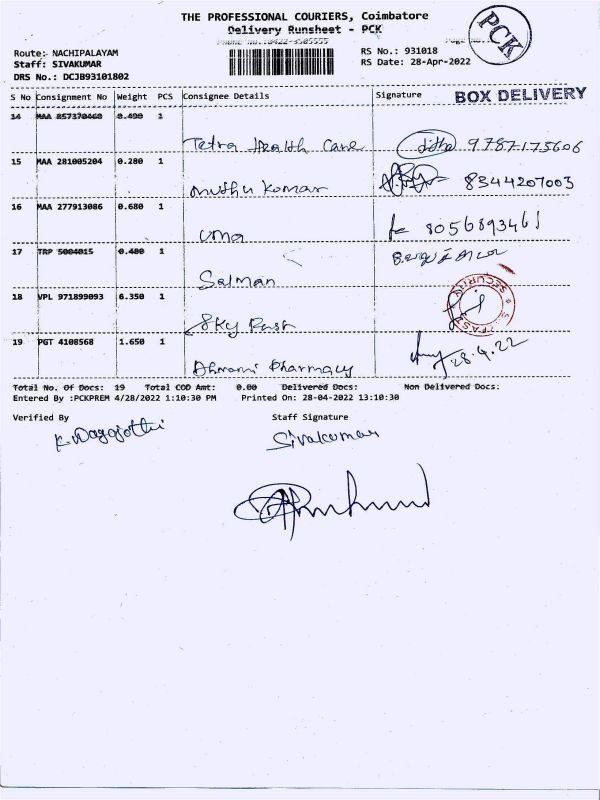 THE PROFESSIONAL COURIERS, Coimbatore
Delivery Runsheet - PCK
PCK
Route: NACHIPALAYAM
RS No.: 931018
Staff: SIVAKUMAR
RS Date: 28-Apr-2022
DRS No.: DCJB93101802
S No Consignment No Weight PCS Consignee Details Signature BOX DELIVERY
14 MAA 857370460 0.490 1
Tetra Health Care 9787175606
15 MAA 281005204 0.280 1
muthu kumar 8344207003
16 MAA 277913086 0.680 1
uma 8056893461
17 TRP 5004015 0.480 1
Salman
18 VPL 971899093 6.350 1
Sky Rash SECURITY
19 PGT 4108568 1.650 1
Dhrani Pharmacy 28.4.22
Total No. Of Docs: 19 Total COD Amt: 0.00 Delivered Docs: Non Delivered Docs:
Entered By :PCKPREM 4/28/2022 1:10:30 PM Printed On: 28-04-2022 13:10:30
Verified By Staff Signature
Sivakumar